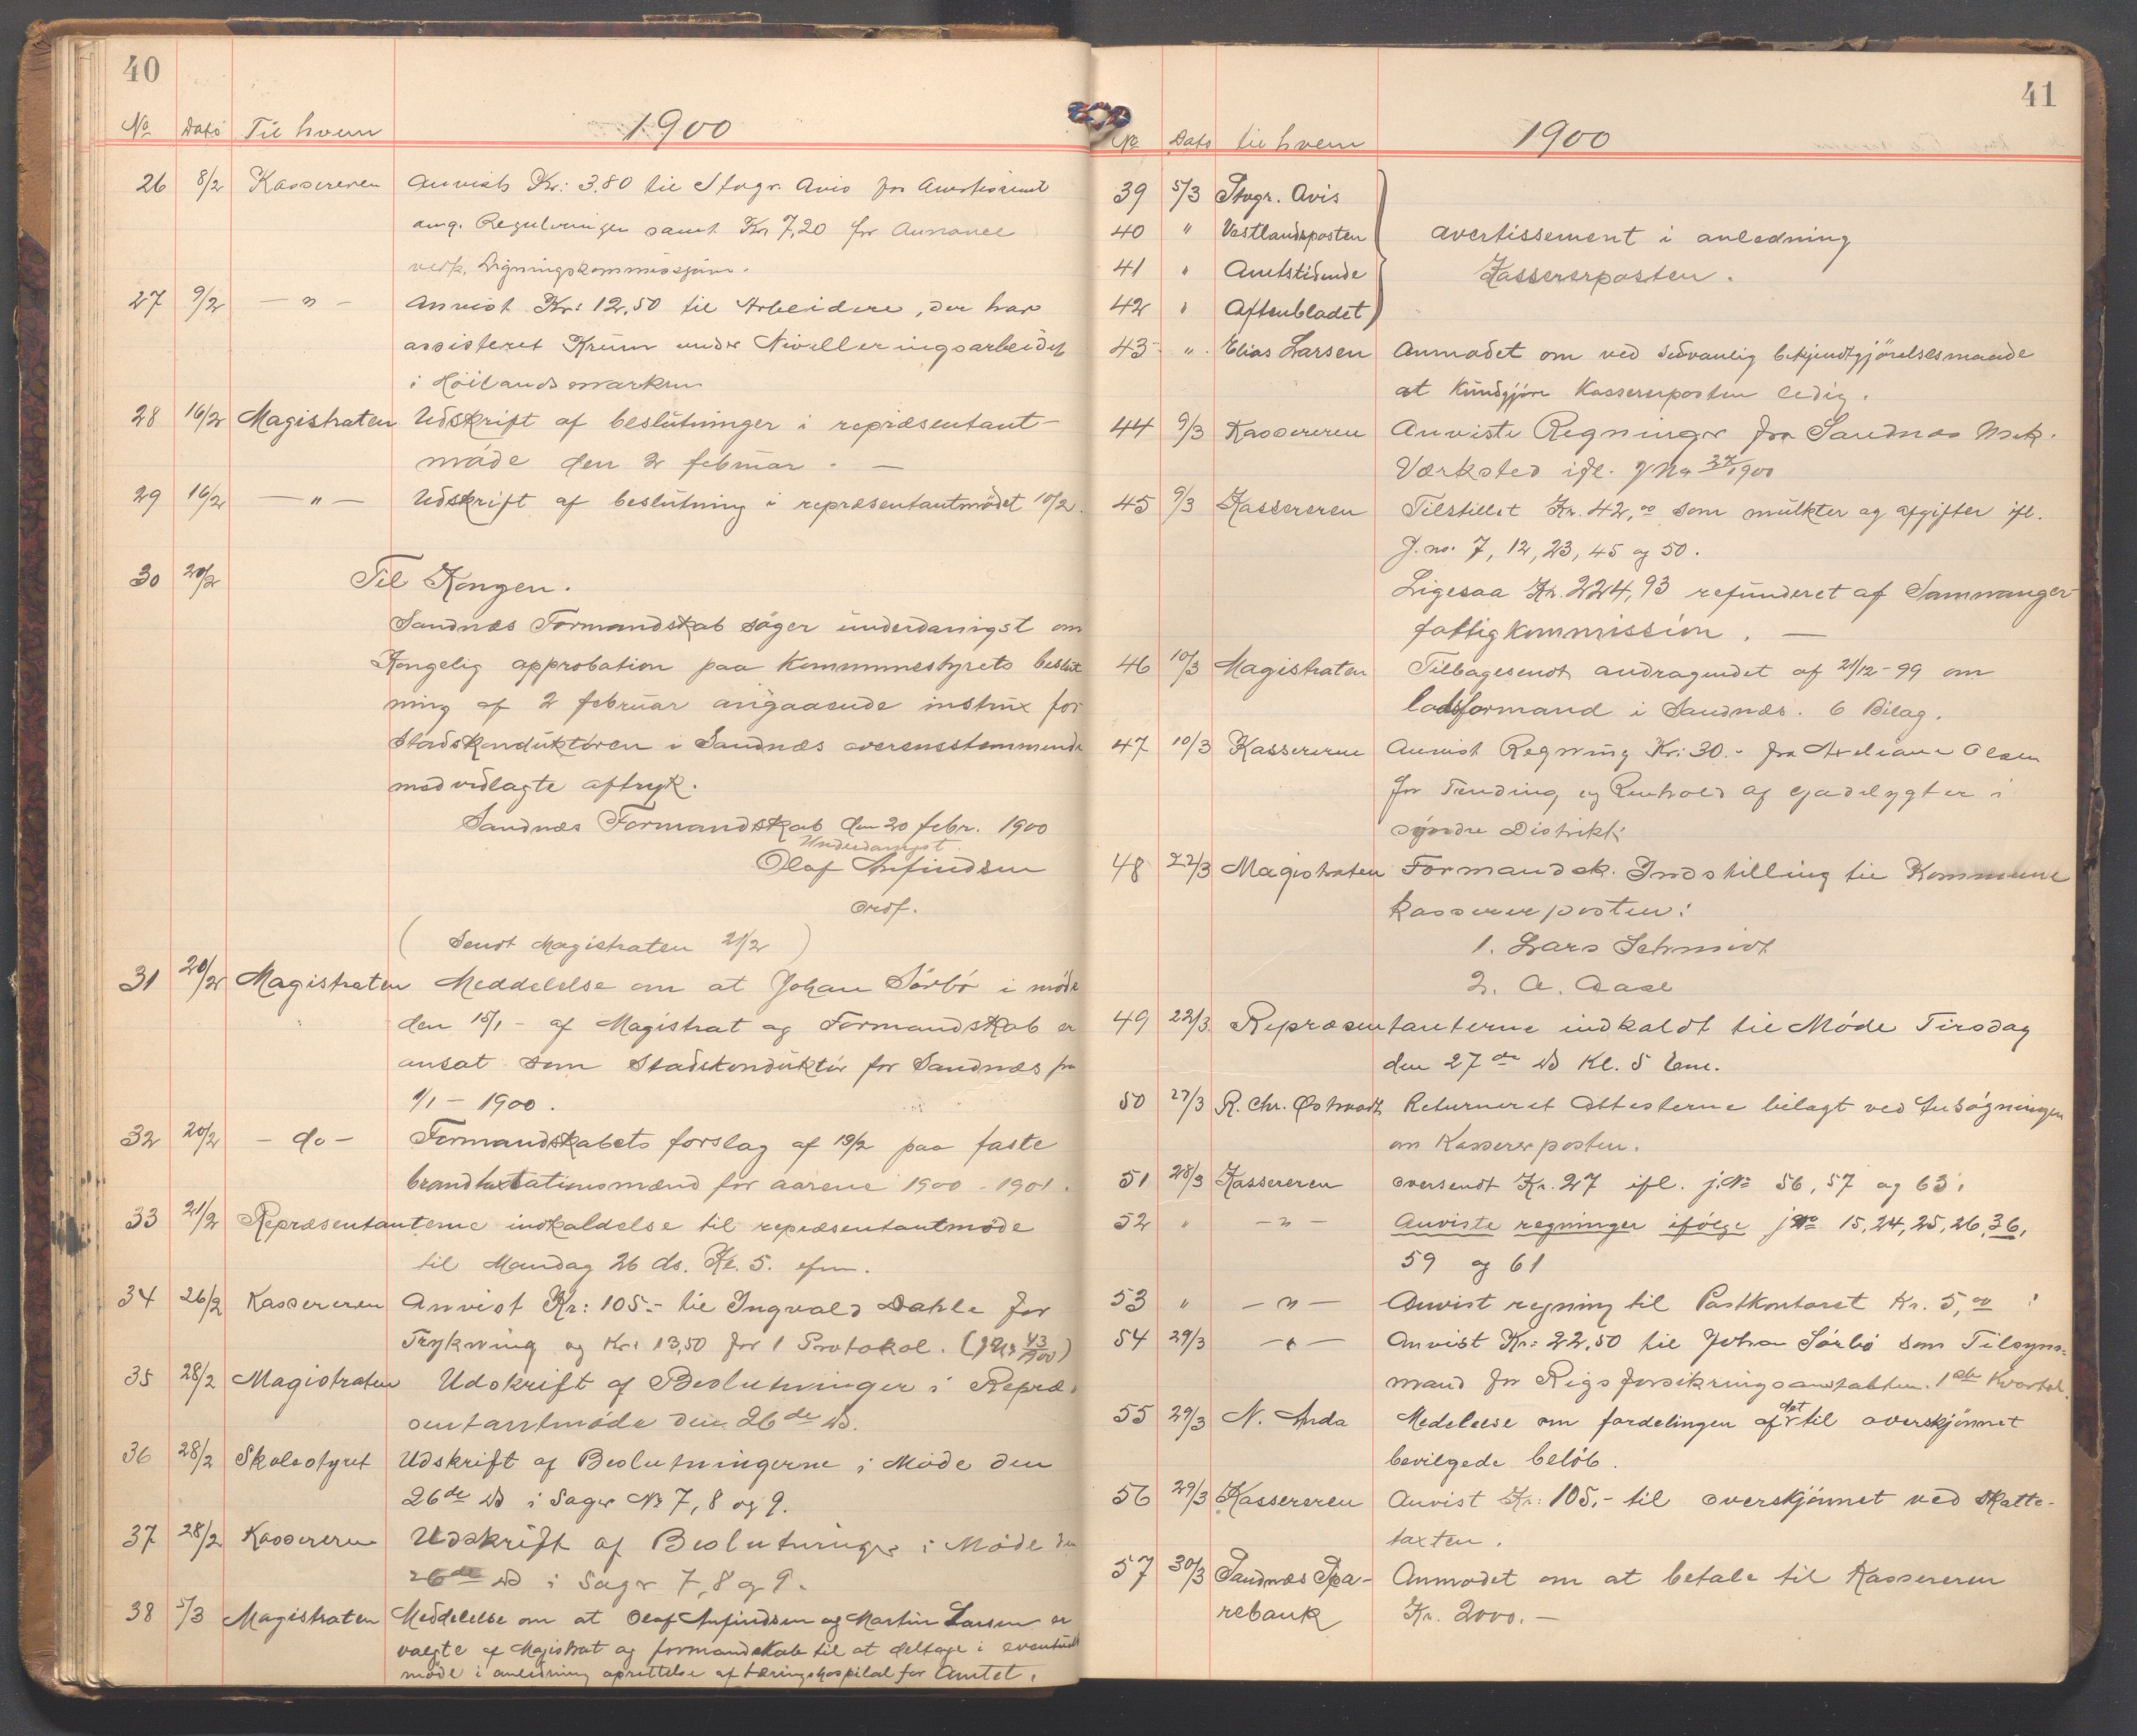 40
No Dato Til hvem 1900
26 8/2 Kassereren Anvist Kr: 3.80 til Stvgr. Avis for Avertissemt
ang. Reguleringen samt Kr 7,20 for Annonce
vedk. Ligningskommissjon.
27 9/2 — " — Anvist Kr: 12.50 til Arbeidere, der har
assisteret Krum under Nivelleringsarbeidet
i Höilandsmarken
28 16/2 Magistraten Udskrift af beslutninger i repræsentant-
möde den 2 februar. —
29 16/2 — " — Udskrift af beslutning i repræsentantmödet 10/2.
30 20/2 Til Kongen.
Sandnæs Formandskab söger underdanigst om
Kongelig approbation paa Kommunestyrets beslut
ning af 2 februar angaaende instrux for
Stadskonduktören i Sandnæs overensstemmende
med vedlagte aftryk.
Sandnæs Formandskab den 20 febr. 1900
Underdanigst
Olaf Anfindsen
Ordf.
( Sendt Magistraten 21/2 )
31 20/2 Magistraten Meddelelse om at Johan Sörbö i möde
den 15/1 - af Magistrat og Formandskab er
ansat som Stadskonduktör for Sandnæs fra
1/1 - 1900.
32 20/2 - do - Formandskabets forslag af 19/2 paa faste
brandtaxtationsmænd for aarene 1900 - 1901.
33 21/2 Repræsentanterne indkaldelse til repræsentantmöde
til Mandag 26 ds. Kl. 5. efm.
34 26/2 Kassereren Anvist Kr: 105.- til Ingvald Dahle for
Trykning og Kr: 13,50 for 1 Protokol. (J No 43/1900)
35 28/2 Magistraten Udskrift af Beslutninger i Repræ-
sentantmöde den 26de ds.
36 28/2 Skolestyret Udskrift af Beslutningerne i Möde den
26de ds i Sager No 7, 8 og 9.
37 28/2 Kassereren Udskrift af Beslutninger i Möde den
26de ds i Sager 7, 8 og 9.
38 5/3 Magistraten Meddelelse om at Olaf Anfindsen og Martin Larsen er
valgte af Magistrat og formandskab til at deltage i eventuelt
möde i anledning oprettelse af tæringshospital for Amtet.
41
No Dato til hvem 1900
39 5/3 Stvgr. Avis
40 " Vestlandsposten avertissement i anledning
41 " Amtstidende Kassererposten.
42 " Aftenbladet
43 " Elias Larsen Anmodet om ved sedvanlig bekjendtgjörelsesmaade
at kundgjöre Kassererposten ledig.
44 9/3 Kassereren Anviste Regninger fra Sandnæs Mek.
Værksted ifl. J No 34/1900
45 9/3 Kassereren Tilstillet Kr. 42,00 som mulkter og afgifter ifl.
J. no: 7, 12, 23, 45 og 50.
Ligesaa Kr. 224,93 refunderet af Samnanger
fattigkommission. —
46 10/3 Magistraten Tilbagesendt andragendet af 21/12 - 99 om
lodsformand i Sandnæs. 6 Bilag.
47 10/3 Kassereren Anvist Regning Kr: 30.- fra Olsen
for Tending og Renhold af Gadelygter i
söndre Distrikt.
48 22/3 Magistraten Formandsk. Indstilling til Kommune
kassererposten:
1. Lars Schmidt
2. A. Aase
49 22/3 Repræsentanterne indkaldt til Möde Tirsdag
den 27de ds Kl. 5 Em.
50 27/3 R. Chr. Østvedt Returneret Attesterne bilagt ved Ansögningen
om Kassererposten.
51 28/3 Kassereren oversendt Kr. 27 ifl. j. No 56, 57 og 63.
52 " — " — Anviste regninger ifölge j No 15, 24, 25, 26, 36,
59 og 61
53 " — " — Anvist regning til Postkontoret Kr. 5,00
54 29/3 — " — Anvist Kr: 22,50 til Johan Sörbö som Tilsyns-
mand for Rigsforsikringsanstalten. 1ste Kvartal.
55 29/3 N. Anda Medelelse om fordelingen af det til overskjönnet
bevilgede belöb.
56 29/3 Kassereren Anvist Kr: 105,- til overskjönnet ved Skatte-
taxten.
57 30/3 Sandnæs Spa- Anmodet om at betale til Kassereren
rebank Kr. 2000.—